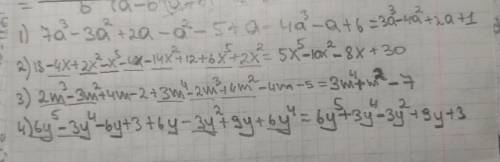 8 (a-b
1) 7a³-3a²+2a-a²-5+a-4a³-a+6=3a³-4a²+2a+1
2) 18-4x+2x²-x⁵-4x-14x²+12+6x⁵+2x²=5x⁵-10x²-8x+30
3) 2m³-3m²+4m-2+3m⁴-2m³+4m²-4m-5=3m⁴+m²-7
4) 6y⁵-3y⁴-6y+3+6y-3y²+9y+6y⁴=6y⁵+3y⁴-3y²+9y+3